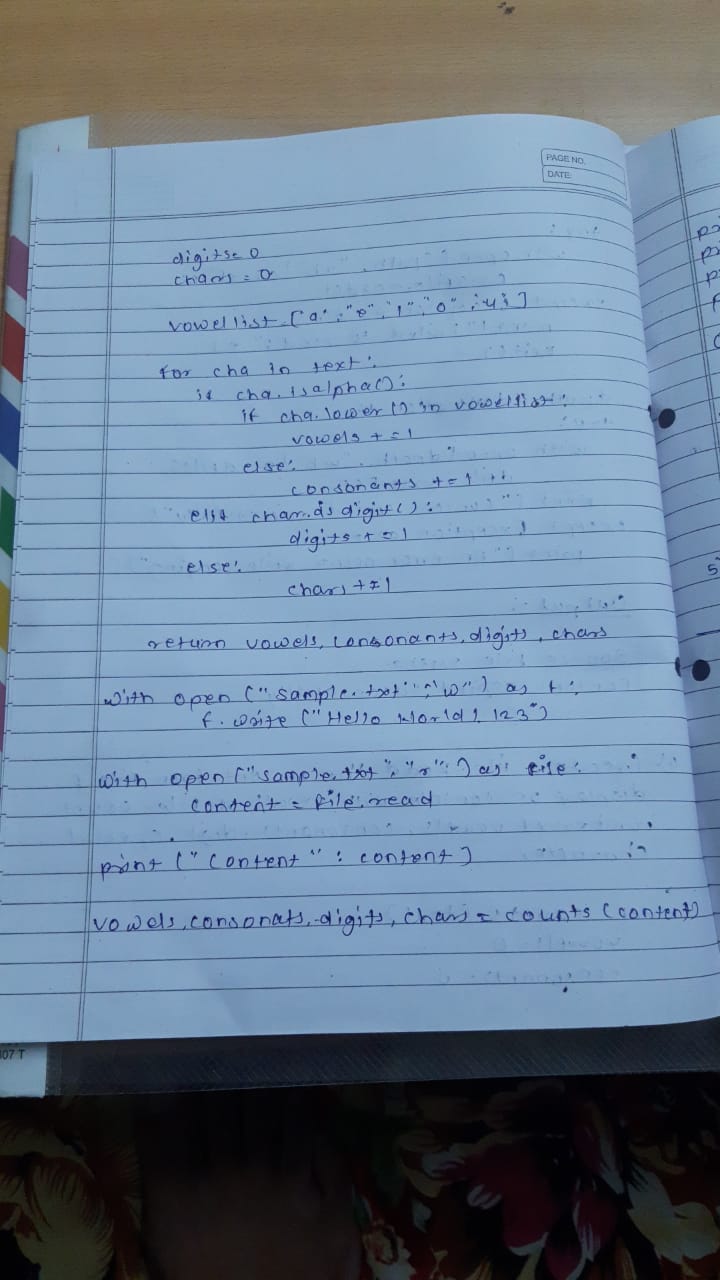 PAGE NO.
DATE:
digits= 0
chars = 0
vowel list = ['a', "e", "i", "o", 'u']
for cha in text:
if cha.isalpha():
if cha.lower() in vowellist:
vowels +=1
else:
consonants +=1
elif char.isdigit():
digits +=1
else:
chars +=1
return vowels, consonants, digits, chars
with open ("sample.txt", "w") as f:
f. write ("Hello World! 123")
with open ("sample.txt", "r") as file:
content = file.read
print ("Content" : content)
vowels, consonats, digits, chars = counts (content)
107 T